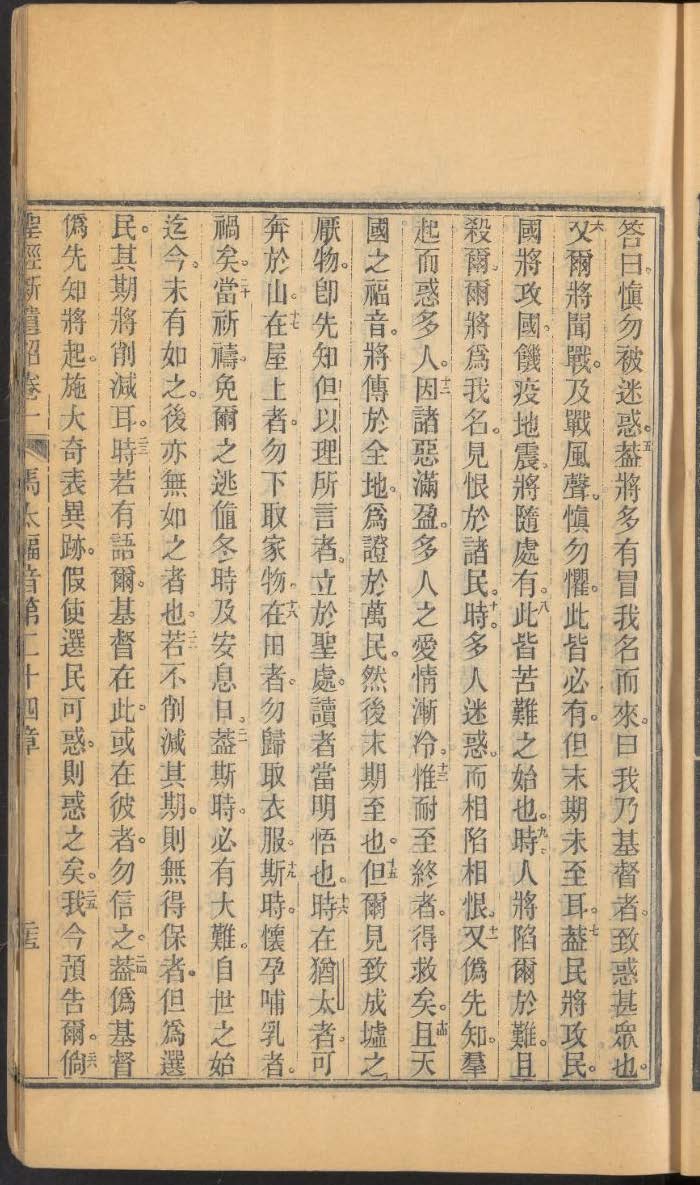 答曰。愼勿被迷惑。五葢將多有冒我名而來。曰我乃基督者。致惑甚眾也。
六又爾將聞戰。及戰風聲。愼勿懼。此皆必有。但末期未至耳。七葢民將攻民。
國將攻國。饑疫地震。將隨處有。八此皆苦難之始也。九時人將陷爾於難。且
殺爾。爾將爲我名。見恨於諸民。十時多人迷惑。而相陷相恨。十一又僞先知。羣
起而惑多人。十二因諸惡滿盈。多人之愛情漸冷。十三惟耐至終者。得救矣。十四且天
國之福音。將傳於全地。爲證於萬民。然後末期至也。十五但爾見致成墟之
厭物。卽先知但以理所言者。立於聖處。讀者當明悟也。十六時在猶太者。可
奔於山。十七在屋上者。勿下取家物。十八在田者。勿歸取衣服。十九斯時。懷孕哺乳者。
禍矣。二十當祈禱。免爾之逃値冬時及安息日。二一葢斯時。必有大難。自世之始
迄今。未有如之。後亦無如之者也。二二若不削減其期。則無得保者。但爲選
民。其期將削減耳。二三時若有語爾。基督在此。或在彼者。勿信之。二四葢僞基督
僞先知將起。施大奇表異跡。假使選民可惑。則惑之矣。二五我今預告爾。二六倘
聖經新遺詔卷一 馬太福音第二十四章 二五